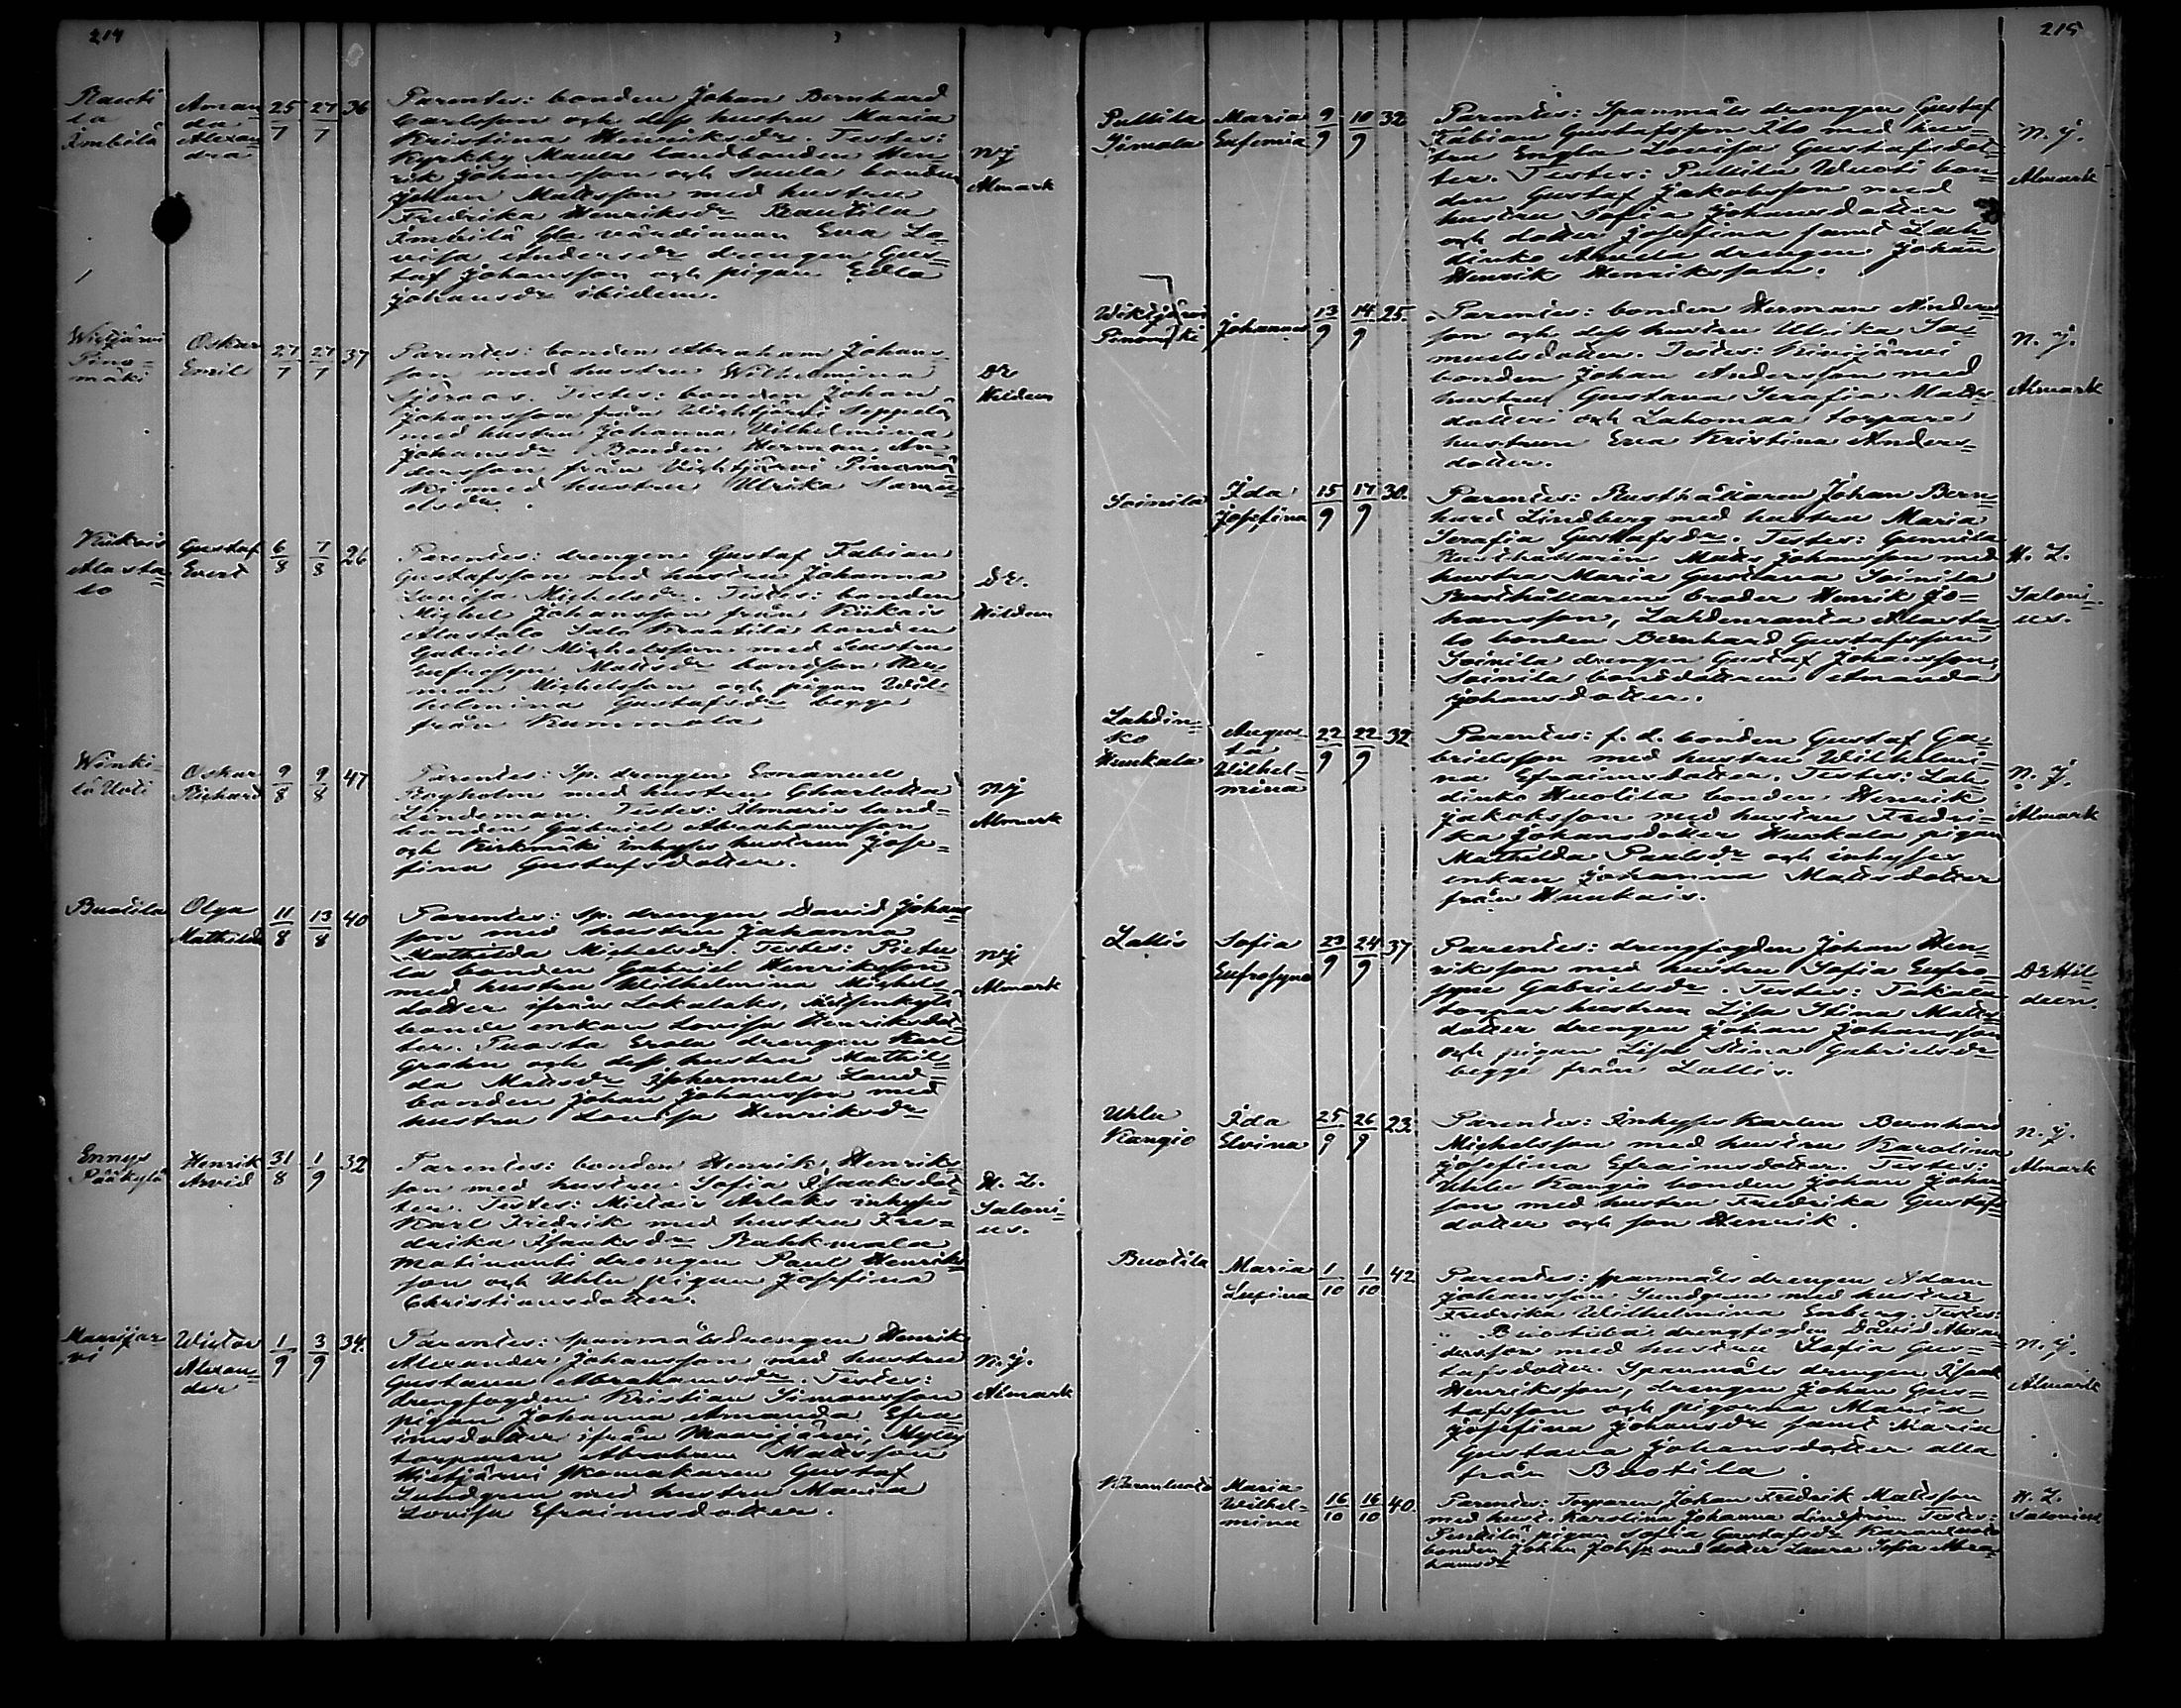 214
Rauti
la
Imbilä
Aman
da
Alexan
dra
25/7 27/7 36
Parentes: bonden Johan Bernhard
Carlsson och dess hustru Maria
Kristina Henriksdr. Testes:
Kyrkby Maulas landbonden Hen-
rik Johansson och Saula bonden
Johan Mattsson med hustru
Fredrika Henriksdr Rautila
Imbilä gla värdinnan Eva Lo-
visa Andersdr drengen Gus-
taf Johansson och pigan Edla
Johansdr ibidem.
NJ
Almark
Wirtjärvi
Pino-
mäki
Oskar
Emil
27/7 27/7 37
Parentes: bonden Abraham Johans-
son med hustru Wilhelmina
Sjöroos. Testes: bonden Johan
Johansson från Wihtjärvi Seppälä
med hustru Johanna Wilhelmina
Johansdr Bonden Herman An-
dersson från Vihtjärvi Pinomä-
ki med hustru Ulrika Samu-
elsdr.
DR
Hildeen
Kiikois
Alasta-
lo
Gustaf
Evert
6/8 7/8 26
Parentes: drengen Gustaf Fabian
Gustafsson med hustru Johanna
Lovisa Michelsdr. Testes: bonden
Michel Johansson från Kiikois
Alastalo Salo Knaapila bonden
Gabriel Michelsson med hustru
Eufrosyne Mattsdr bondson Her-
man Michelsson och pigan Wil-
helmina Gustafsdr begge
från Kummola
DR.
Hildeen
Winki-
lä Uoti
Oskar
Richard
9/8 9/8 47
Parentes: Sp. drengen Emanuel
Bogholm med hustru Charlotta
Lindeman. Testes: Ilmaris land-
bonden Gabriel Abrahamsson
och Kirkmäki inhyses hustrun Jose-
fina Gustafsdotter.
NJ
Almark
Buotila
Olga
Mathilda
11/8 13/8 40
Parentes: sp. drengen David Johans-
son med hustru Johanna
Mathilda Michelsdr. Testes: Pietu-
la bonden Gabriel Henriksson
med hustru Wilhelmina Michels-
dotter ifrån Lokalaks,
bonde enkan Lovisa Henriksdot-
ter. Puosta Erola drengen Karl
Grahn och dess hustru Mathil-
da Mattsdr Land-
bonden Johan Johansson med
hustru Lovisa Henriksdr
NJ
Almark
Ennys
Pääkylä
Henrik
Arvid
31/8 1/9 32
Parentes: bonden Henrik Henriks-
son med hustru Sofia Isaksdot-
ter. Testes: Mietois Arlaks inhyses
Karl Fredrik med hustru Fre-
drika Isaksdr Rahkmala
Matinanti drengen Paul Henriks-
son och Uhlu pigan Josefina
Christiansdotter.
H. Z.
Saloni-
us.
Maarijär-
vi
Wictor
Alexan-
der
1/9 3/9 34.
Parentes: spanmålsdrengen Henrik
Alexander Johansson med hustru
Gustava Abrahamsdr. Testes:
drengfogden Kristian Simonsson
pigan Johanna Amanda Efra-
imsdotter ifrån Maarijärvi, Mylly
torparen Abraham Mattsson
Wictjärvi skomakaren Gustaf
Lundgren med hustru Maria
Lovisa Efraimsdotter.
N. J.
Almark
215
Puttila
Simola
Maria
Eufemia
9/9 10/9 32
Parentes: Spanmåls drengen Gustaf
Fabian Gustafsson Ilo med hus-
tru Engla Lovisa Gustafsdot-
ter. Testes: Puttila Wuoti bon-
den Gustaf Jakobsson med
hustru Sofia Johansdotter
och dotter Josefina samt Lah-
dinko Anvela drengen Johan
Henrik Henriksson.
N. J.
Almark
Wiktjärvi
Pinomäki
Johannes
13/9 14/9 25.
Parentes: bonden Herman Anders-
son och dess hustru Ulrika Sa-
muelsdotter. Testes: Kivijärvi
bonden Johan Andersson med
hustru Gustava Serafia Matts-
dotter och Lahomaa torpare
hustrun Eva Kristina Anders-
dotter.
N. J.
Almark
Soinila
Ida
Josefina
15/9 17/9 30.
Parentes: Rusthållaren Johan Bern-
hard Lindberg med hustru Maria
Serafia Gustafsdr. Testes: Gunnila
Rusthållaren Matts Johansson med
hustru Maria Gustava Soinila
Rusthållaren broder Henrik Jo-
hansson, Lahdenranta Alasta-
lo bonden Bernhard Gustafsson
Soinila drengen Gustaf Johansson,
Soinila bonddottren Amanda
Johansdotter.
H. Z.
Saloni-
us.
Lahdin-
ko
Hunkala
Augus-
ta
Wilhel-
mina
22/9 22/9 32
Parentes: f. d. bonden Gustaf Ga-
brielsson med hustru Wilhelmi-
na Efraimsdotter. Testes: Lah-
dinko Huolila bonden Henrik
Jakobsson med hustru Fredri-
ka Johansdotter Hunkala pigan
Mathilda Paulsdr och inhyses
enkan Johanna Mattsdotter
från Hunkais.
N. J.
Almark
Lallis
Sofia
Eufrosyne
23/9 24/9 37
Parentes: drengfogden Johan Hen-
riksson med hustru Sofia Eufro-
syne Gabrielsdr. Testes: Takala
torpar hustrun Lisa Stina Matts-
dotter drengen Johan Johansson
och pigan Lisa Stina Gabrielsdr
begge från Lallis.
DR Hil-
deen.
Uhlu
Kangio
Ida
Elvina
25/9 26/9 23.
Parentes: Inhyses Karlen Bernhard
Michelsson med hustru Karolina
Josefina Efraimsdotter. Testes:
Uhlu Kangio bonden Johan Johans-
son med hustru Fredrika Gustafs-
dotter och son Henrik.
N. J.
Almark
Buotila
Maria
Lusina
1/10 1/10 42
Parentes: spanmåls drengen Adam
Johansson Sundgren med hustru
Fredrika Wilhelmina Enberg. Testes:
Buotila drengfogden David Alexan-
dersson med hustru Sofia Gus-
tafsdotter. Spanmåls drengen Isaak
Henriksson, drengen Johan Gus-
tafsson och pigorna Maria
Josefina Johansdr samt Maria
Gustava Johansdotter alla
från Buotila.
N. J.
Almark
Karanluoto
Maria
Wilhel-
mina
16/10 16/10 40.
Parentes: Torparen Johan Fredrik Mattsson
med hust. Karolina Johanna Lindström Testes:
Penttilä pigan Sofia Gustafsdr Karanluoto
bonden Johan Johss. med dotter Laura Sofia Abra-
hamsdr
H. Z.
Salonius